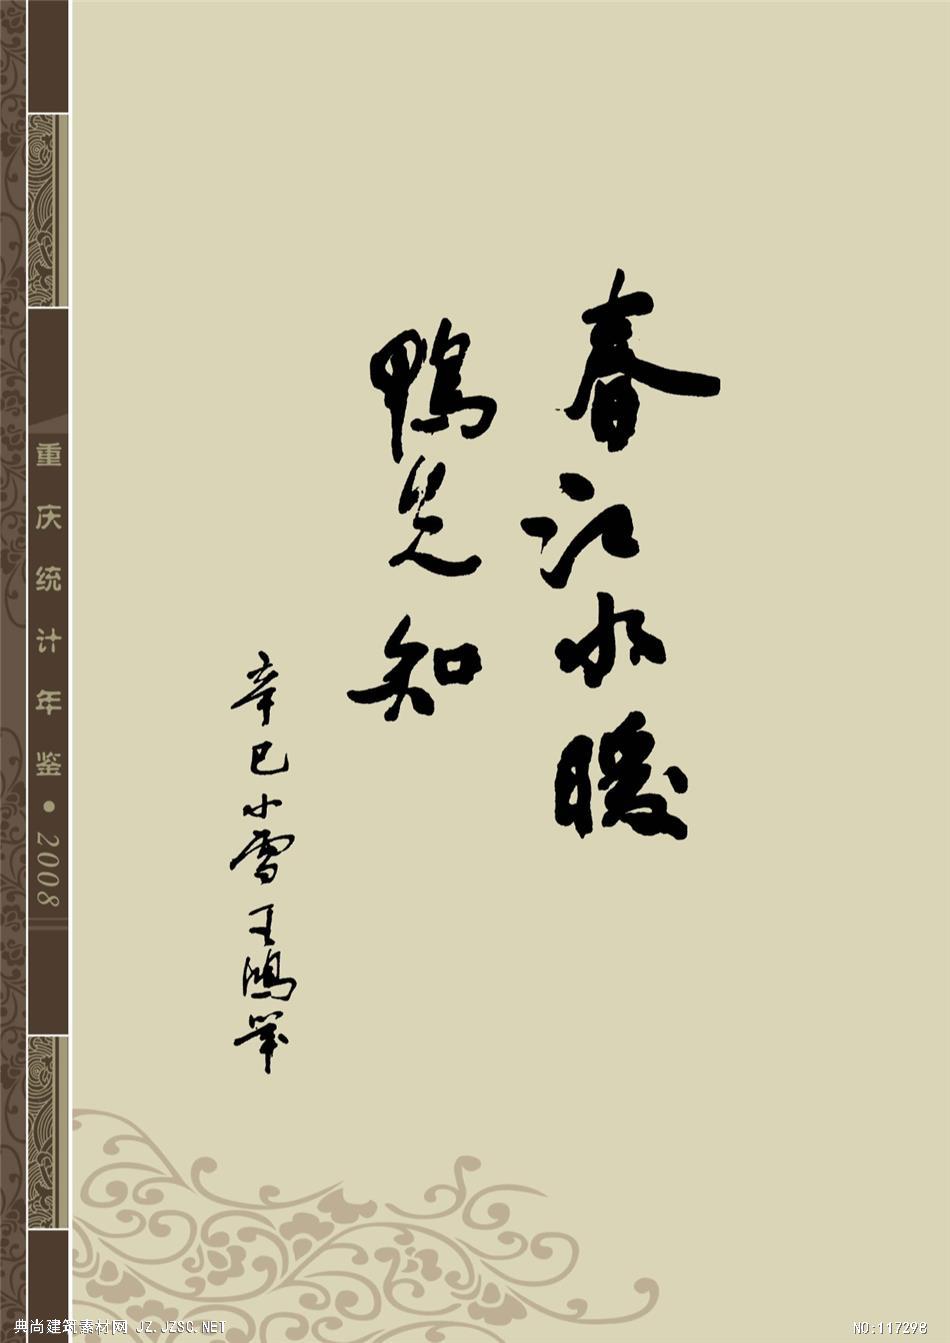 春江水暖
鸭先知
辛巳小雪王鸿举
重庆统计年鉴•2008
典尚建筑素材网 JZ.JZSC.NET
NO:117298